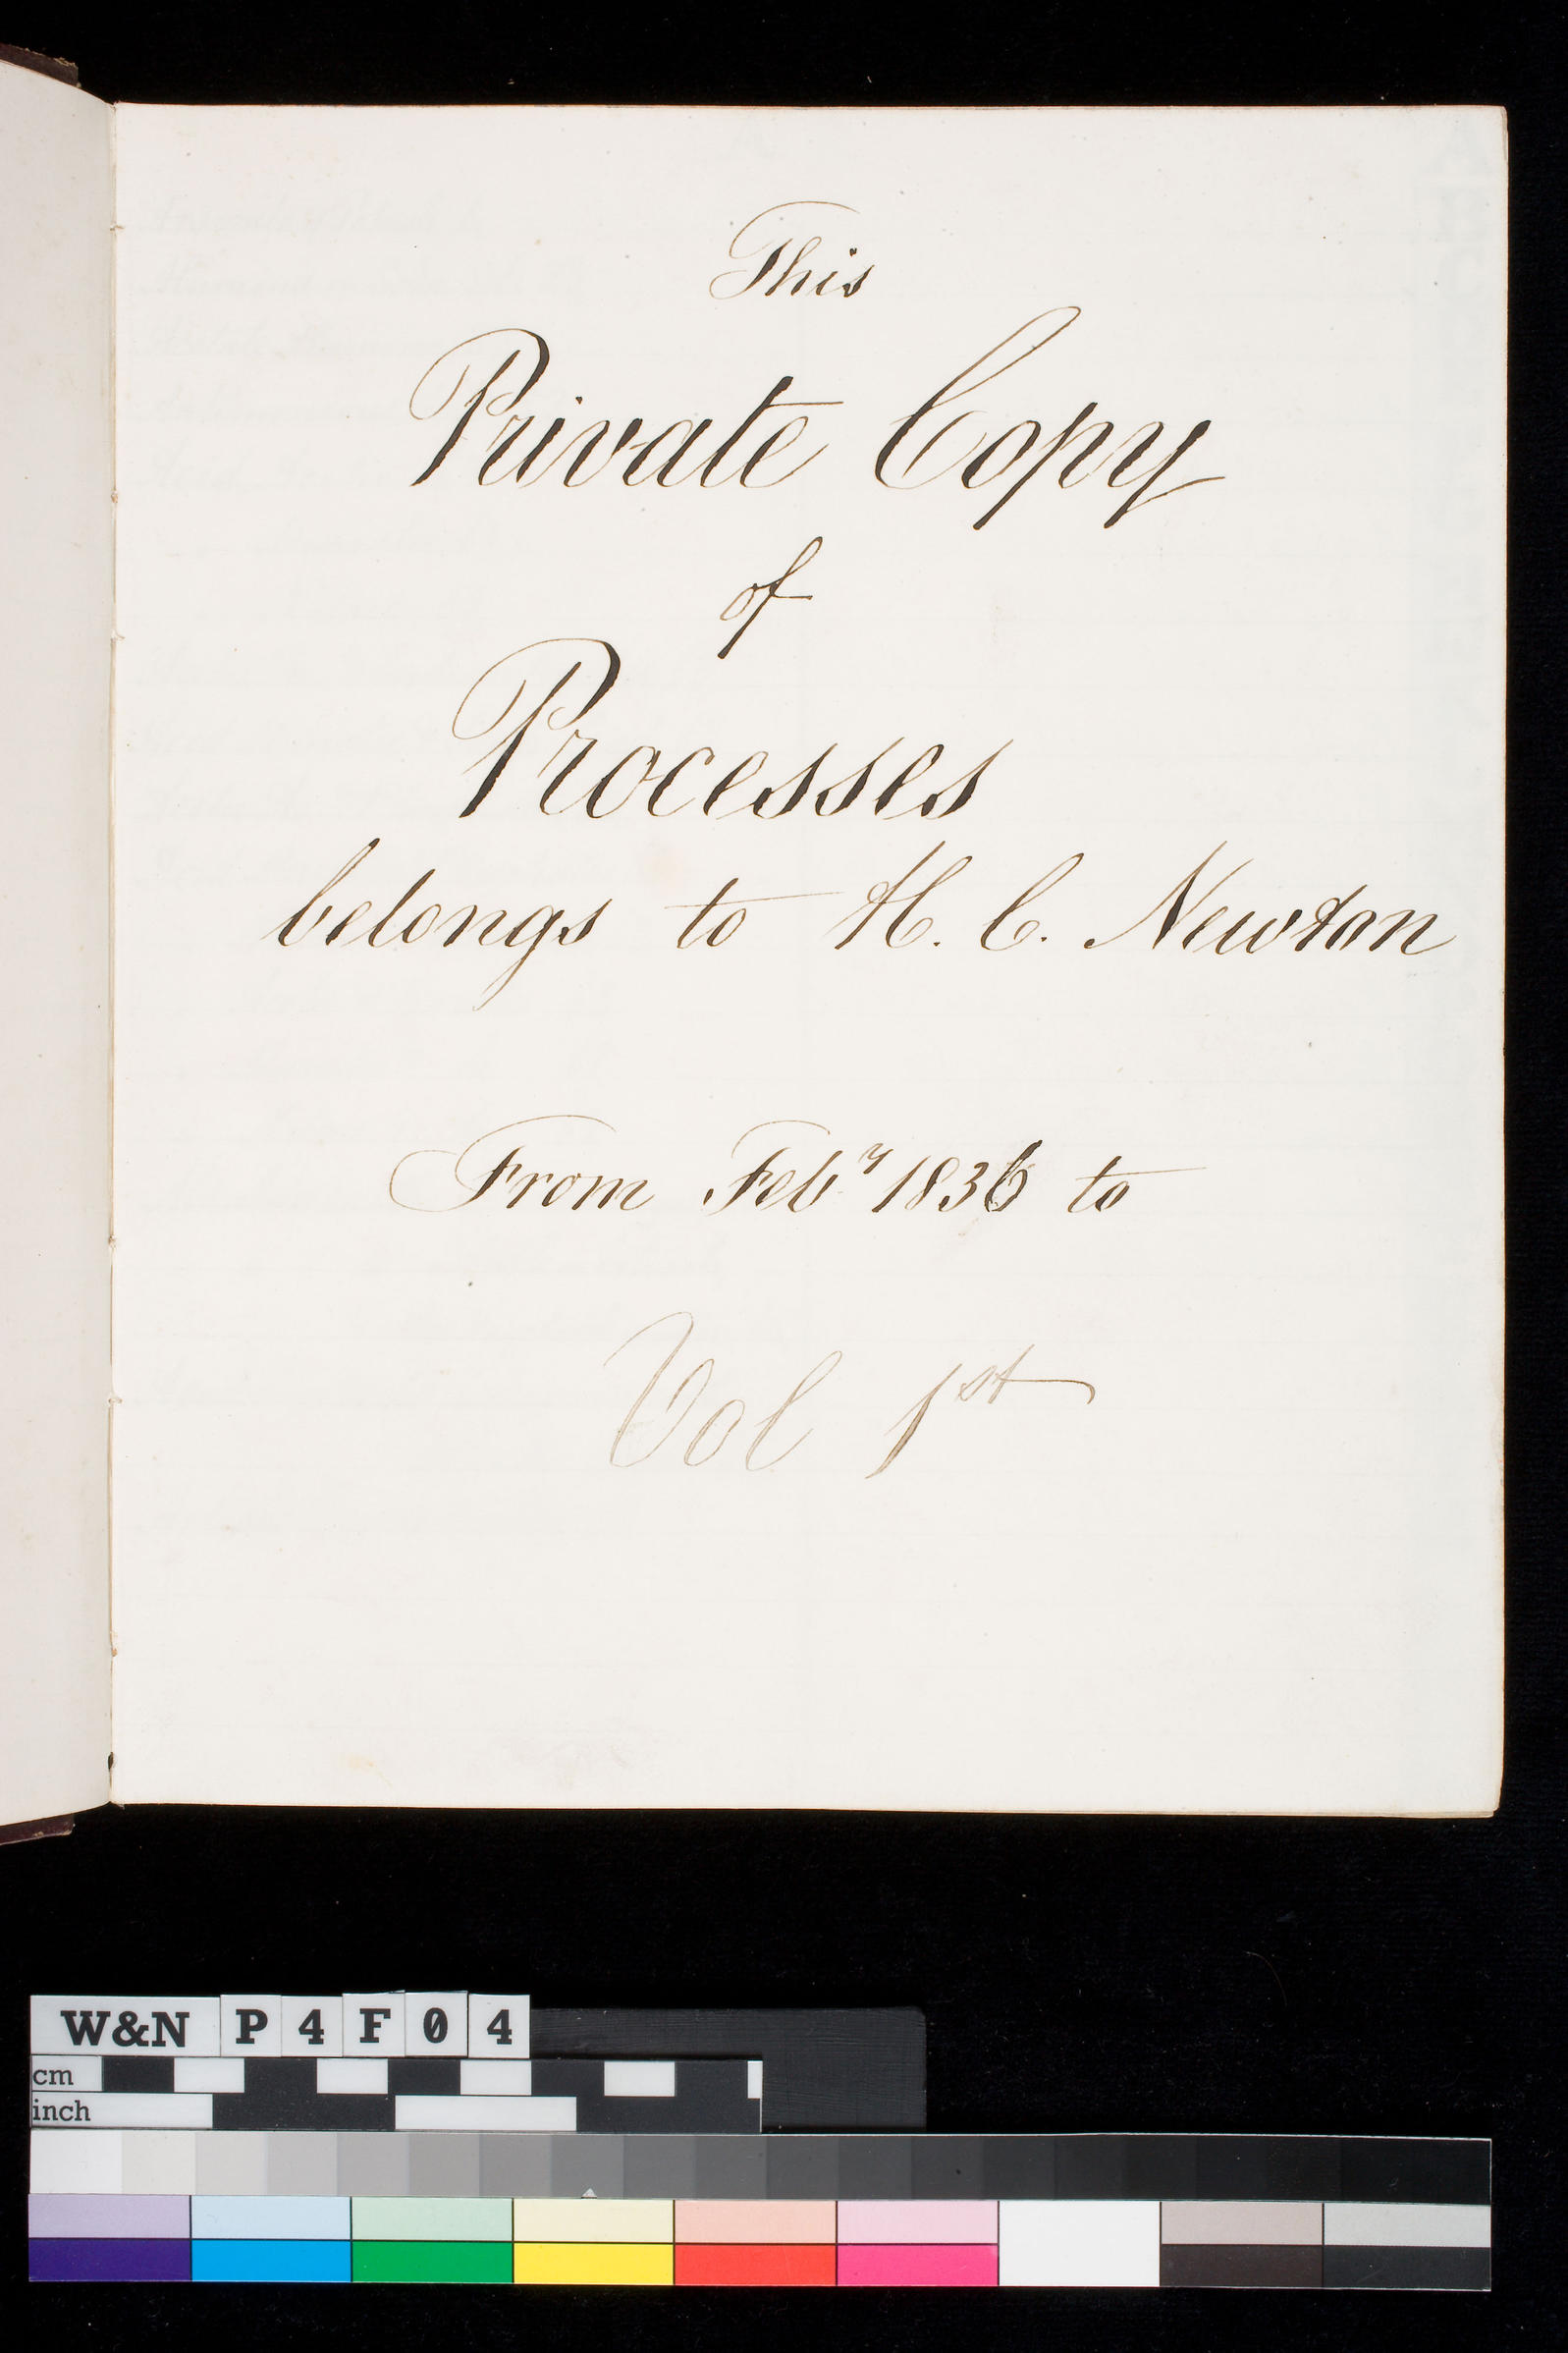 This
Private Copy
of
Processes
belongs to H. C. Newton
From Feb^y 1836 to
Vol 1^st
W&N P4F04
cm
inch